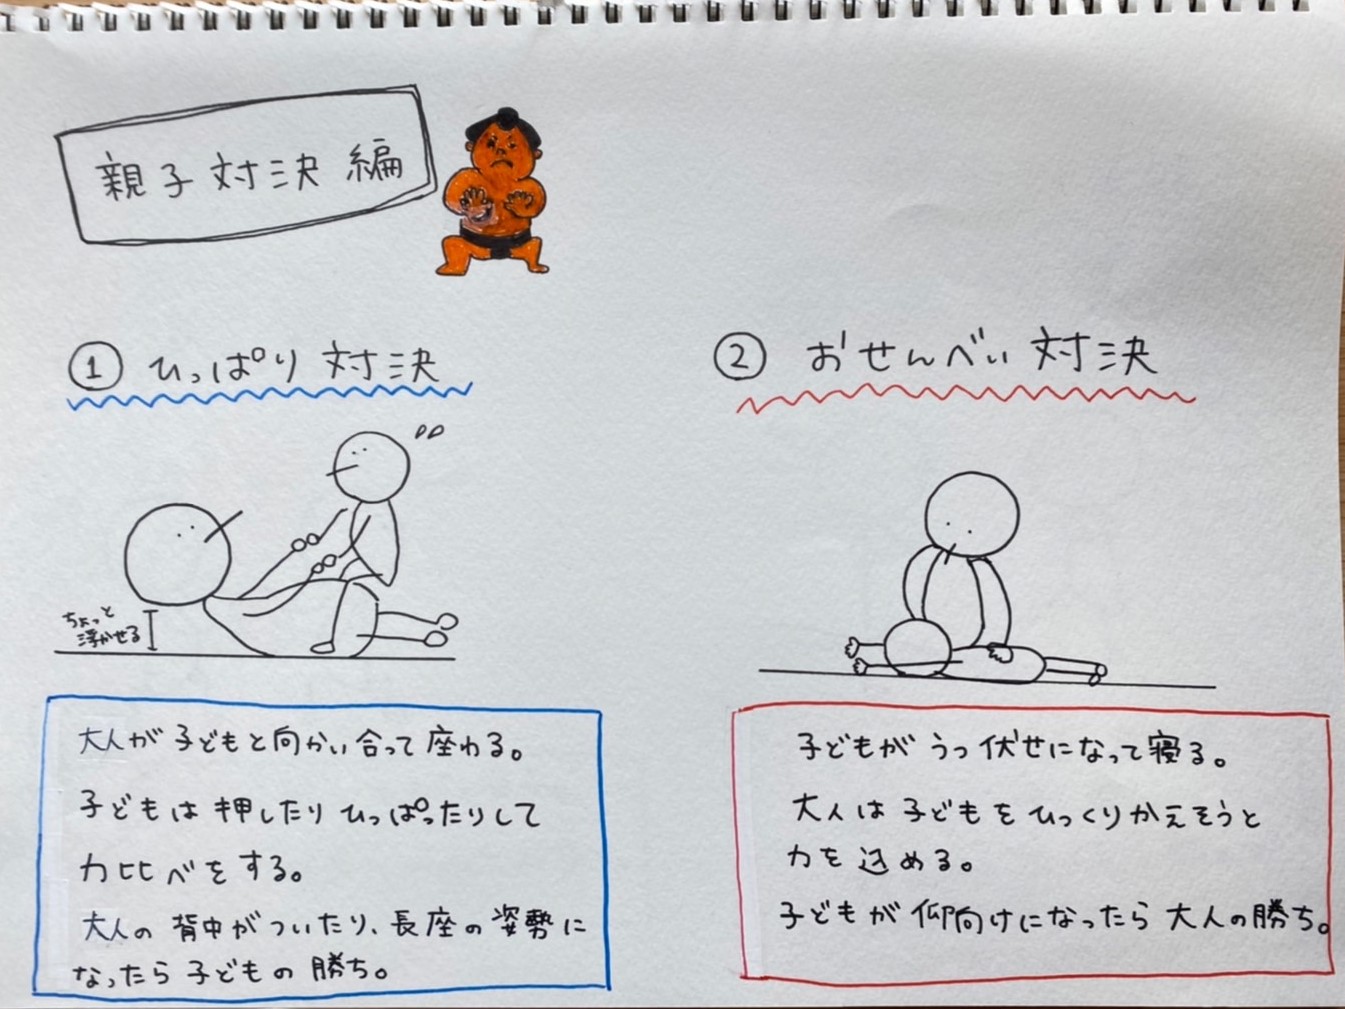 親子対決編
① ひっぱり対決
ちょっと
浮かせる
大人が子どもと向かい合って座わる。
子どもは押したりひっぱったりして
力比べをする。
大人の背中がついたり、長座の姿勢に
なったら子どもの勝ち。
② おせんべい対決
子どもがうつ伏せになって寝る。
大人は子どもをひっくりかえそうと
力を込める。
子どもが仰向けになったら大人の勝ち。